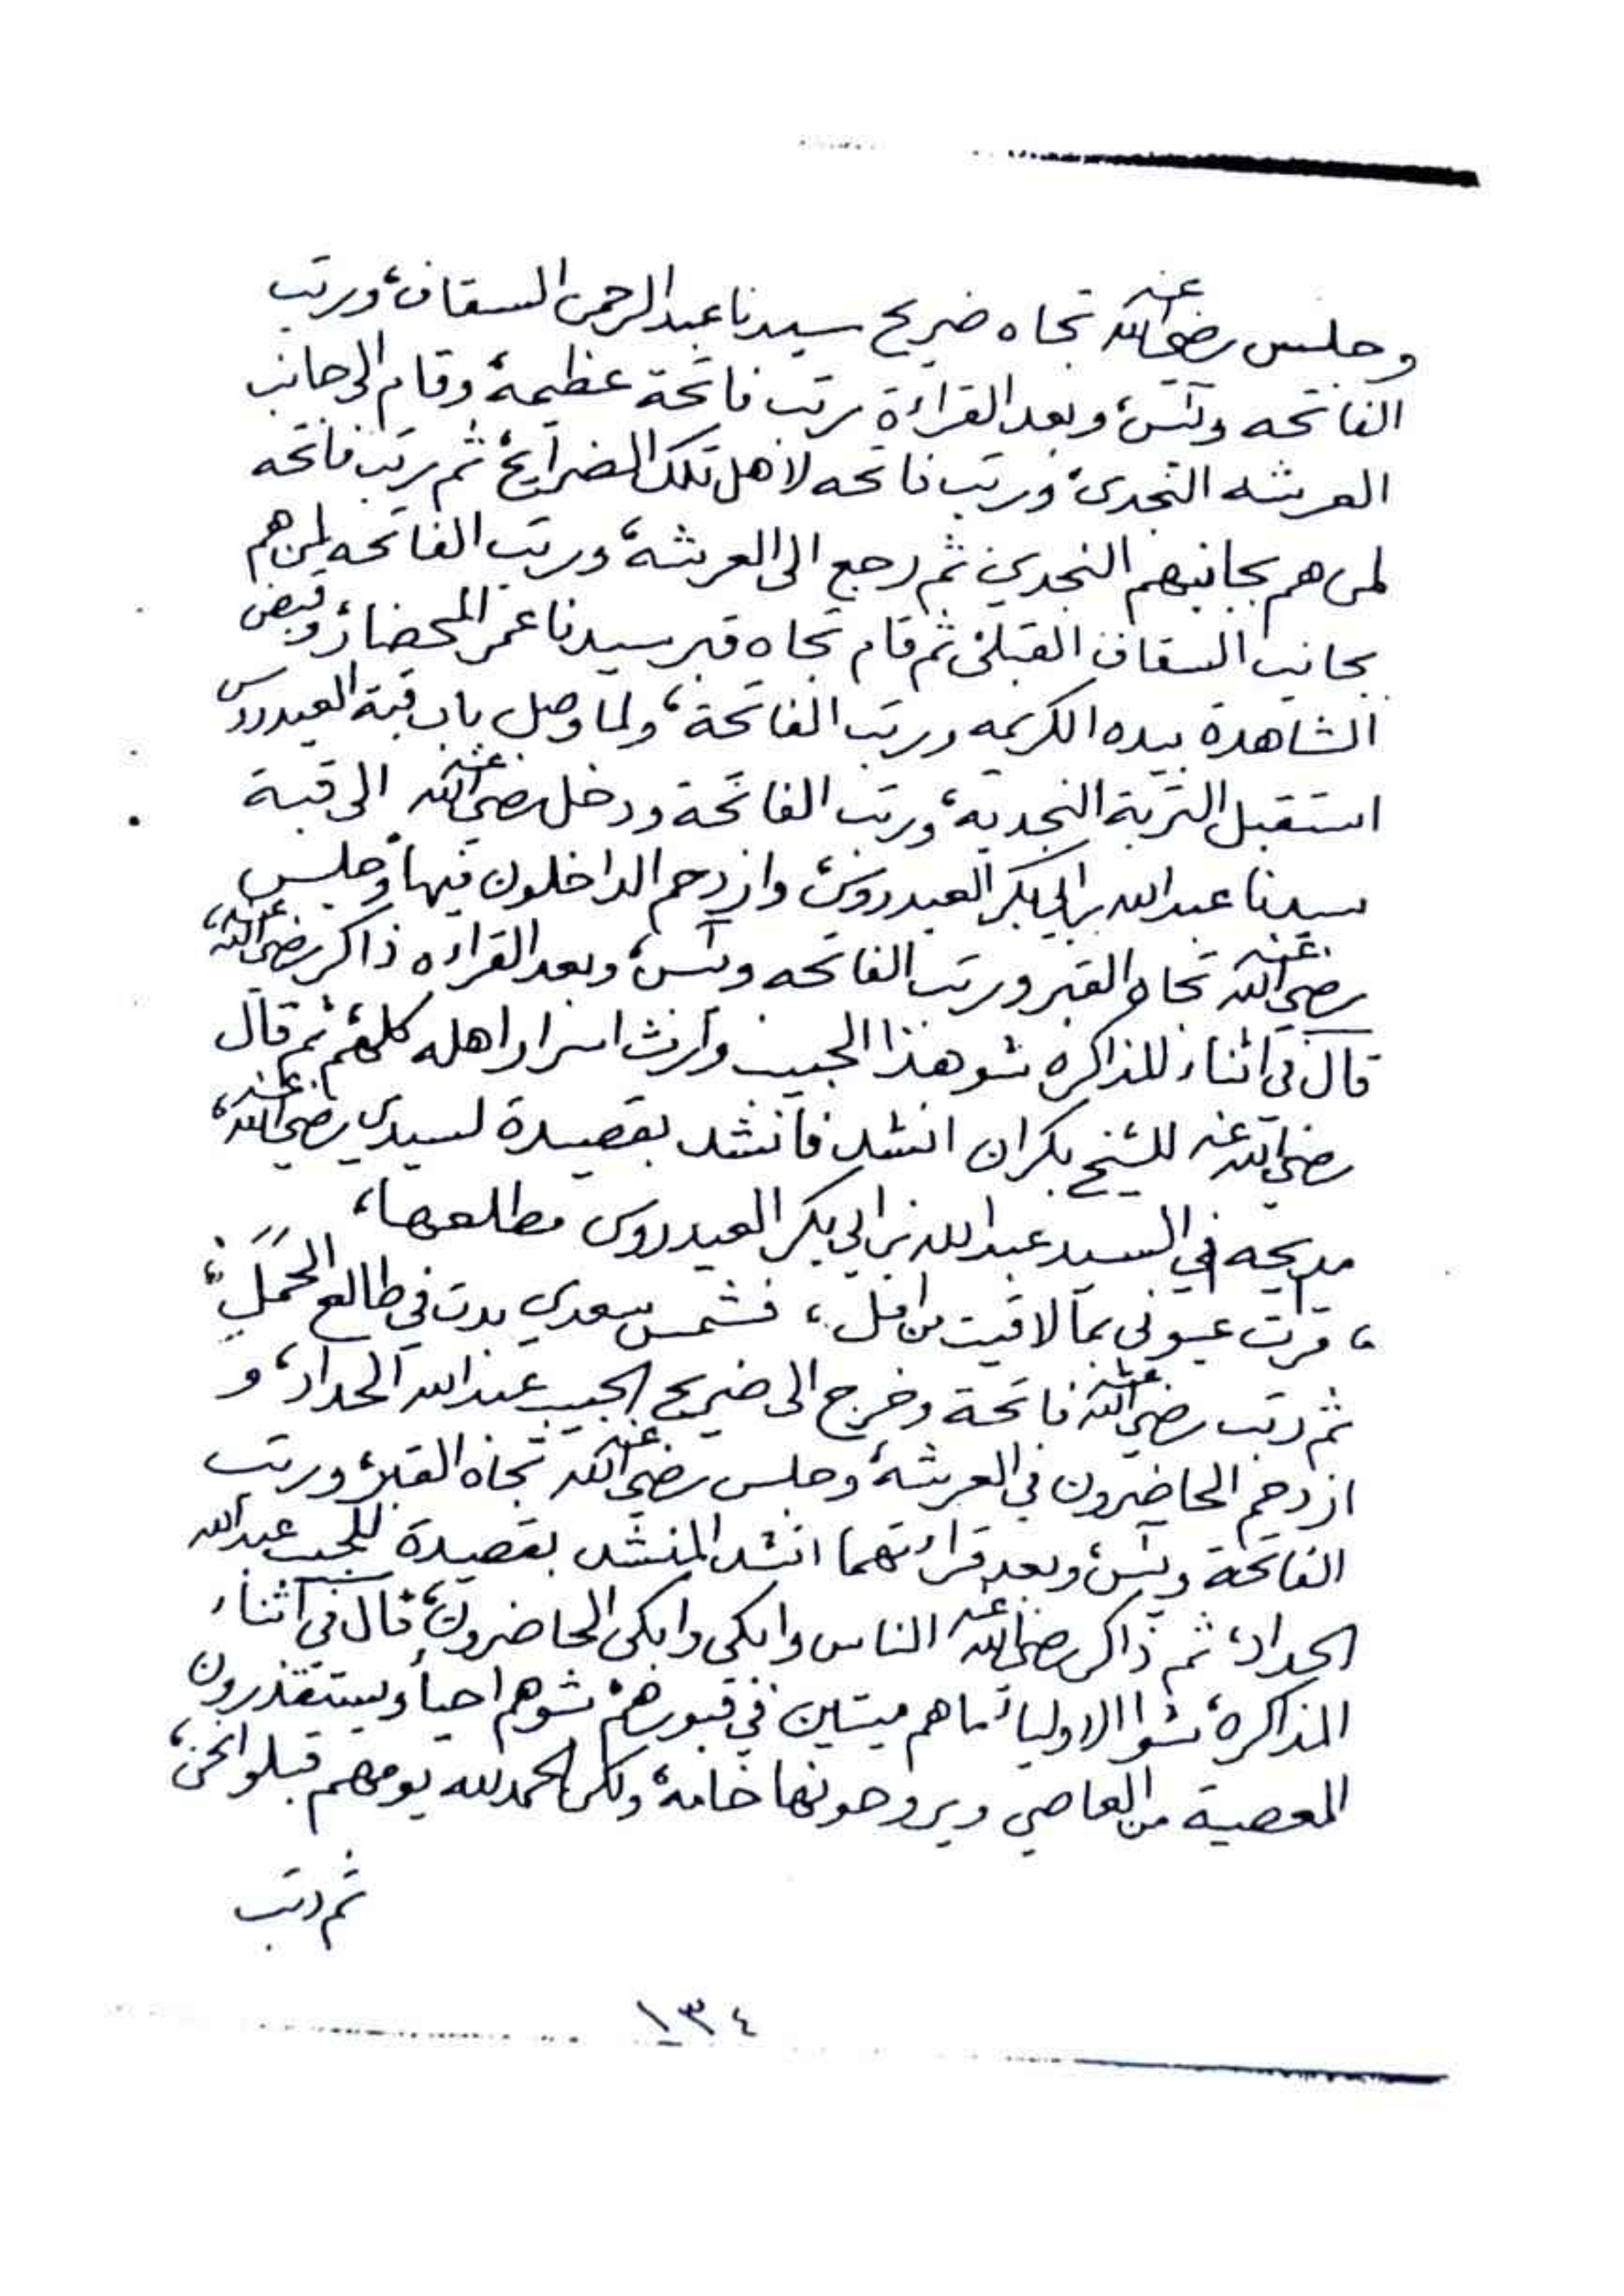 وجلس رضي الله عنه تجاه ضريح سيدنا عبد الرحمن السقاف، ورتب
الفاتحه ويٓس، وبعد القراءة رتب فاتحة عظيمة، وقام الى جانب
العريشه النجدي، ورتب فاتحه لاهل تلك الضرايح، ثم رتب فاتحه
لمن هم بجانبهم النجدي، ثم رجع الى العريشة، ورتب الفاتحه لمن هم
بجانب السقاف القبلي، ثم قام تجاه قبر سيدنا عمر المحضار، وقبض
الشاهدة بيده الكريمه ورتب الفاتحة، ولما وصل باب قبة العيدروس
استقبل التربة النجدية، ورتب الفاتحة ودخل رضي الله عنه الى قبة
سيدنا عبد الله بن ابي بكر العيدروس، وازدحم الداخلون فيها، وجلس
رضي الله عنه تجاه القبر ورتب الفاتحه ويٓس، وبعد القراءه ذاكر رضي الله عنه،
قال في اثناء المذاكره شو هذا الحبيب وارث اسرار اهله كلهم، ثم قال
رضي الله عنه للشيخ بكران انشد فانشد بقصيدة لسيدي رضي الله عنه،
مديحه في السيد عبد الله بن ابي بكر العيدروس مطلعها،
، قرت عيوني بما لاقيت من امل ، فشمس سعدي بدت في طالع الحمل ،
ثم رتب رضي الله عنه فاتحة وخرج الى ضريح الحبيب عبد الله الحداد، و
ازدحم الحاضرون في العريشة، وجلس رضي الله عنه تجاه القبر، ورتب
الفاتحة ويٓس، وبعد قراءتهما انشد المنشد بقصيدة للحبيب عبد الله
الحداد، ثم ذاكر رضي الله عنه الناس وابكى وابكى الحاضرون، قال في اثناء
المذاكره، شوا الاولياء ما هم ميتين في قبورهم، شوهم احياء ويستقذرون
المعصية من العاصي ويروحونها خامة، ولكن الحمد لله يومهم قبلوا نحن،
ثم رتب
١٣٤